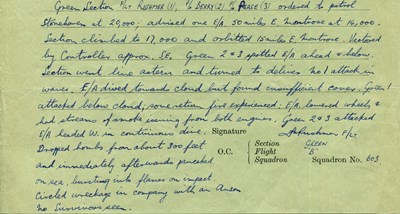 Green Section F/LT RUSHMER (1), P/O BERRY (2) P/O PEASE (3) ordered to patrol
Stonehaven at 20,000; advised one E/A 50 miles E. Montrose at 14,000.
Section climbed to 17,000 and orbitted 15 mile E. Montrose. Vectored
by Controller approx. SE. Green 2 & 3 spotted E/A ahead & below.
Section went line astern and turned to deliver No 1 attack in
waves. E/A dived toward cloud but found insufficient cover. Green 1
attacked below cloud, some return fire experienced. E/A lowered wheels &
had streams of smoke issuing from both engines. Green 2 & 3 attacked
E/A headed W. in continuous dive.
Signature
F/Lt
Dropped bombs from about 300 feet
and immediately afterwards pancaked
on sea, bursting into flames on impact.
Circled wreckage in company with an Anson
No Survivors seen.
O.C.
Section GREEN
Flight "B"
Squadron Squadron No. 603